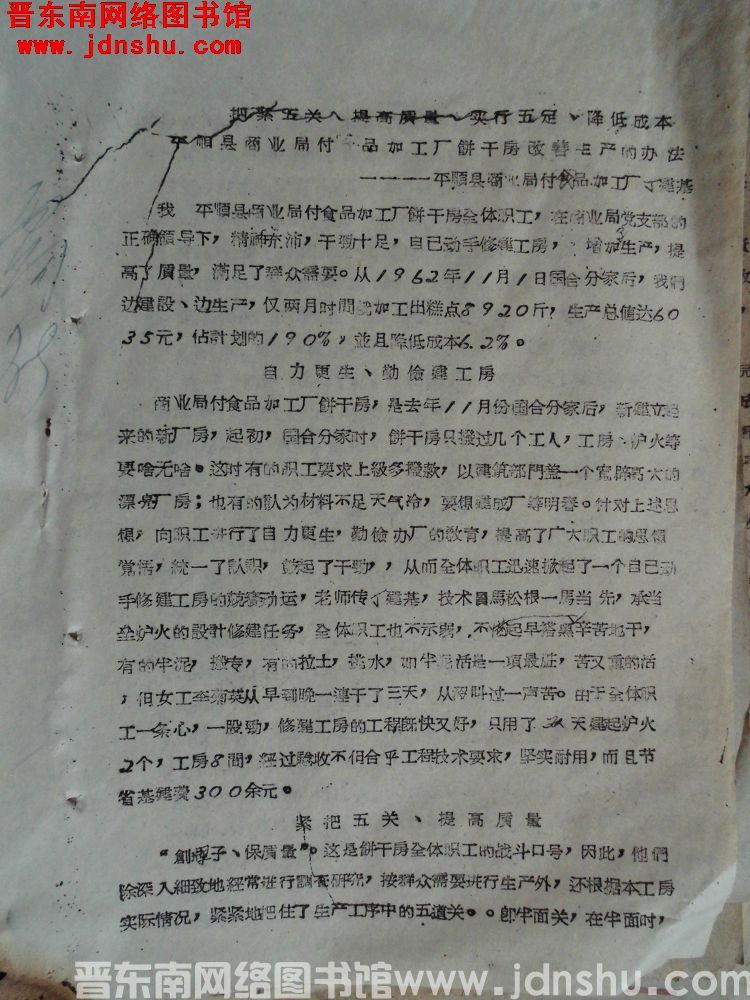 晋东南网络图书馆
www.jdnshu.com
把紧五关、提高质量、实行五定、降低成本
平顺县商业局付食品加工厂餅干房改善生产的办法
————平顺县商业局付食品加工厂丁建基
我 平顺县商业局付食品加工厂餅干房全体职工，在商业局党支部的
正确领导下，精神充沛，干劲十足，自已动手修建工房， 增加生产，提
高了质量，满足了群众需要。从1962年11月1日国合分家后，我們
边建設、边生产，仅两月时間就加工出糕点8920斤，生产总值达60
35元，佔計划的190%，並且降低成本6.2%。
自力更生、勤儉建工房
商业局付食品加工厂餅干房，是去年11月份国合分家后，新建立起
来的新厂房，起初，国合分家时，餅干房只撥过几个工人，工房、炉火等
要啥无啥。这时有的职工要求上級多撥款，以建筑部門盖一个宽濶高大的
漂亮厂房；也有的認为材料不足天气冷，要想建成厂等明春。針对上述思
想，向职工进行了自力更生，勤儉办厂的教育，提高了广大职工的思想
覚悟，統一了認識，鼓起了干勁，，从而全体职工迅速掀起了一个自已动
手修建工房的竞赛动运，老师传丁建基，技术員馬松根一馬当先，承当
垒炉火的設計修建任务，全体职工也不示弱，不惜起早搭黑辛苦地干，
有的和泥，搬专，有的拉土，挑水，如和泥活是一項最脏，苦又重的活
；但女工李菊英从早到晚一連干了三天，从沒叫过一声苦。由于全体职
工一条心，一股勁，修建工房的工程旣快又好，只用了 天建起炉火
2个，工房8間，經过驗收不但合乎工程技术要求，坚实耐用，而且节
省基建費300余元。
紧把五关、提高质量
“創牌子、保质量”。这是餅干房全体职工的战斗口号，因此，他們
除深入細致地經常进行調查研究，按群众需要进行生产外，还根据本工房
实际情况，紧紧地把住了生产工序中的五道关。。即和面关，在和面时，
晋东南网络图书馆www.jdnshu.com